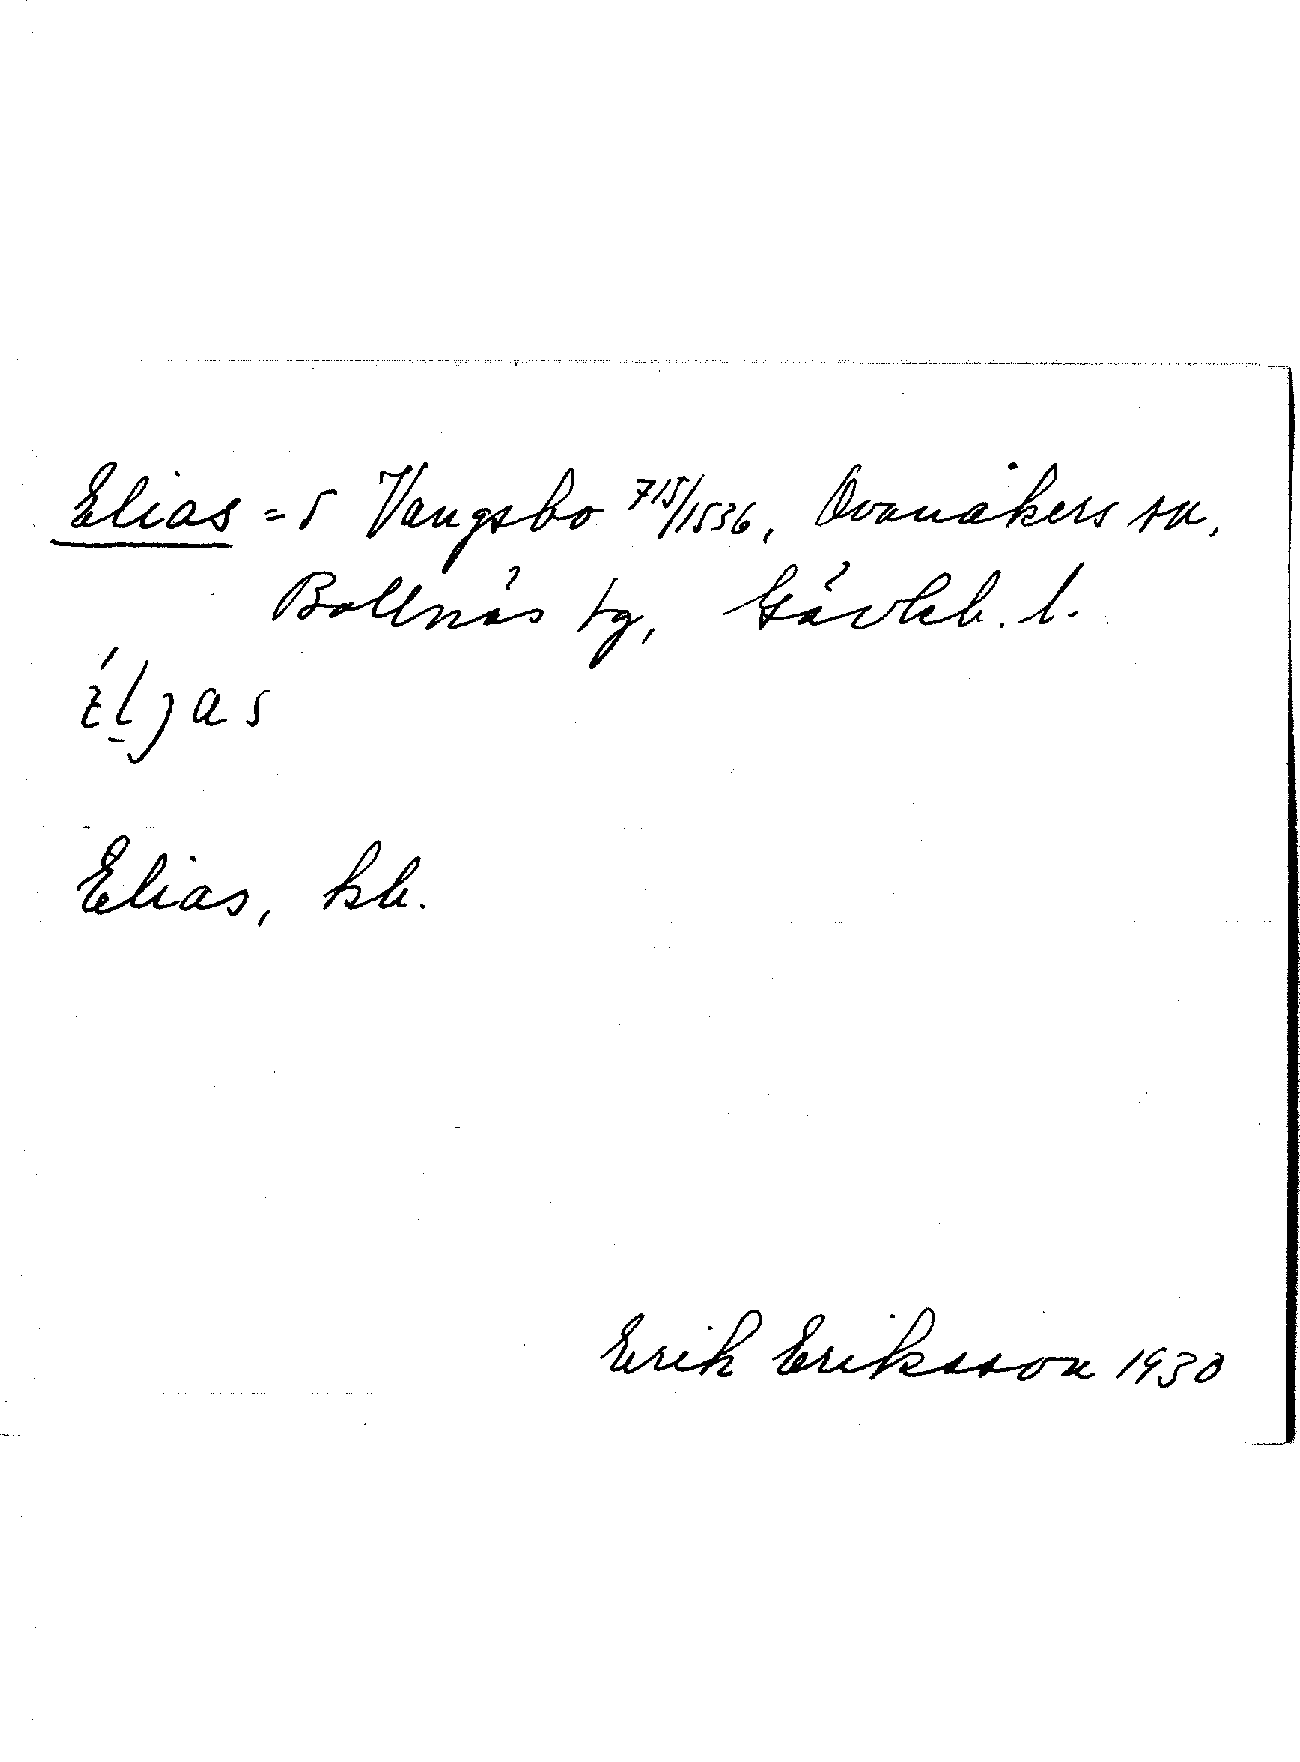 Elias =s Vangsbo 715/1536, Ovanåkers sn,
Bollnäs tg, Gävleb. l.
éljas
Elias, kb.
Erik Eriksson 1930